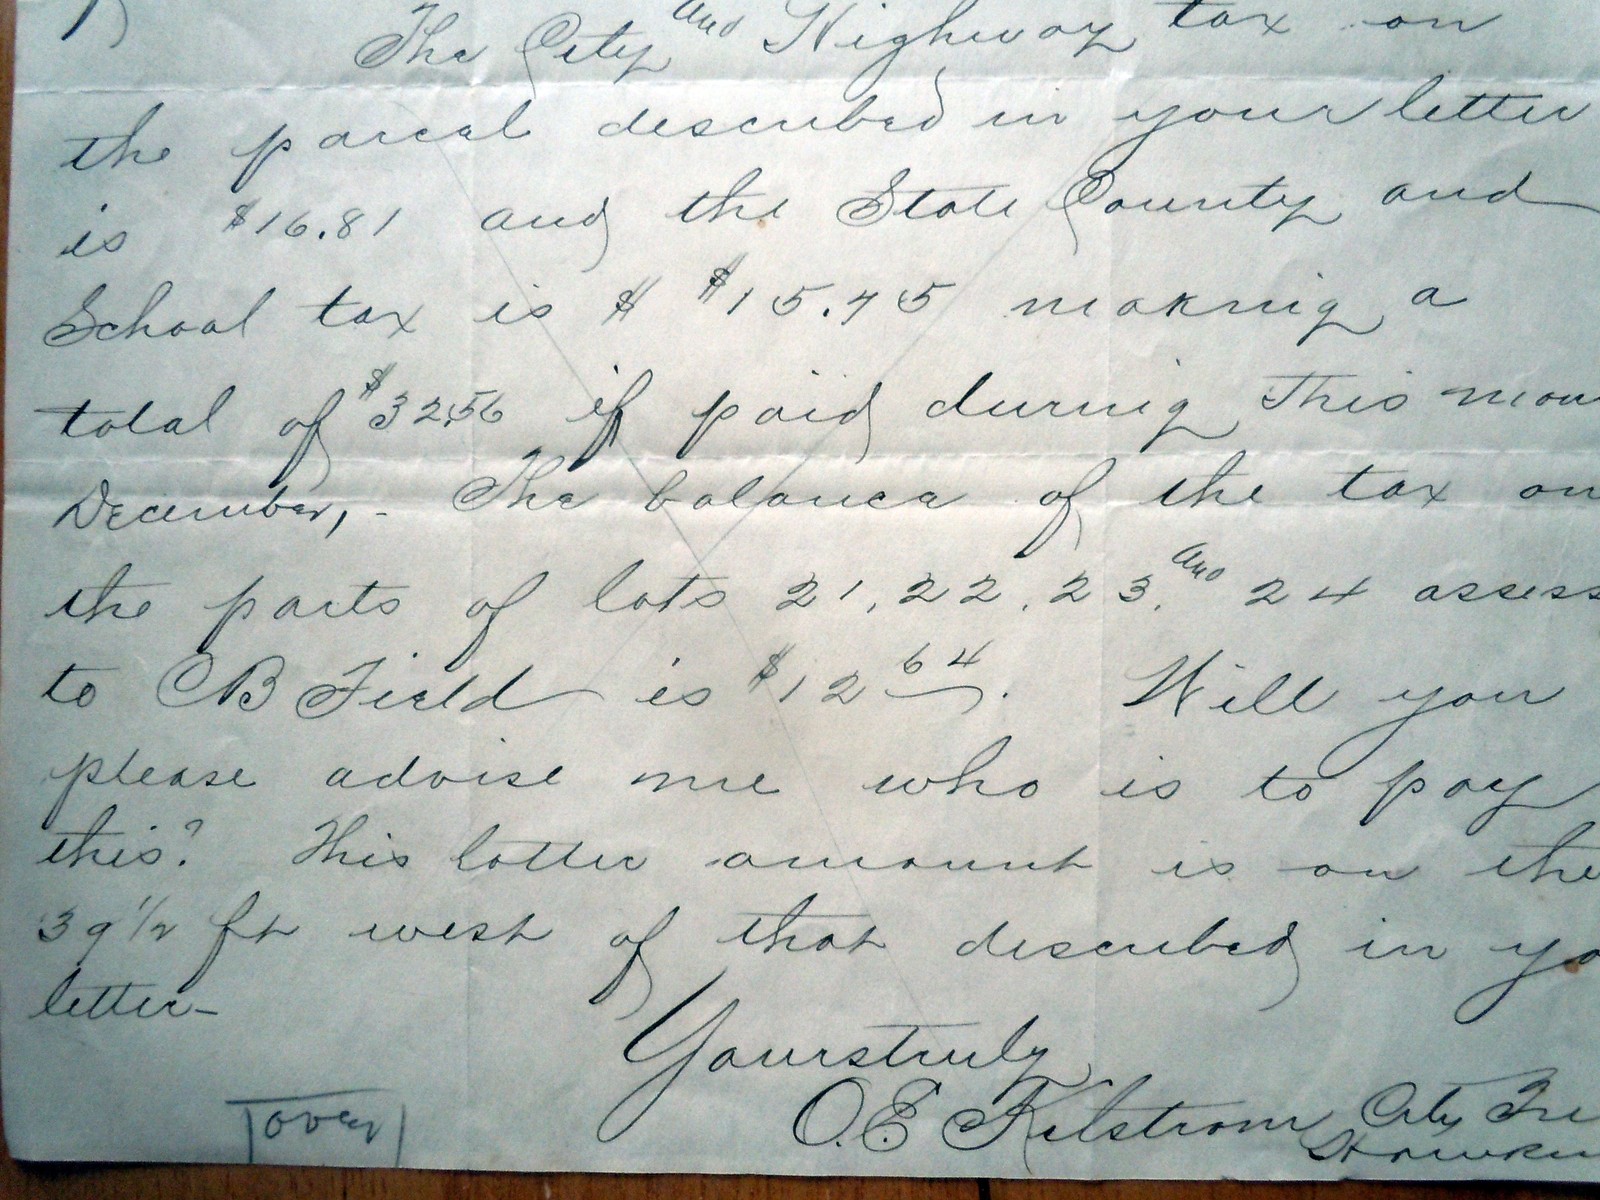 The City and Highway tax on
the parcel described in your letter
is $16.81 and the State County and
School tax is $ $15.75 making a
total of $32.56 if paid during This
December,- The balance of the tax on
the parts of lots 21, 22, 23, and 24 assess
to CB Field is $12 64. Will you
please advise me who is to pay
this? This latter amount is on the
39 1/2 ft west of that described in yo
letter-
Yours truly
O.E. Kelstrom City Tre
over